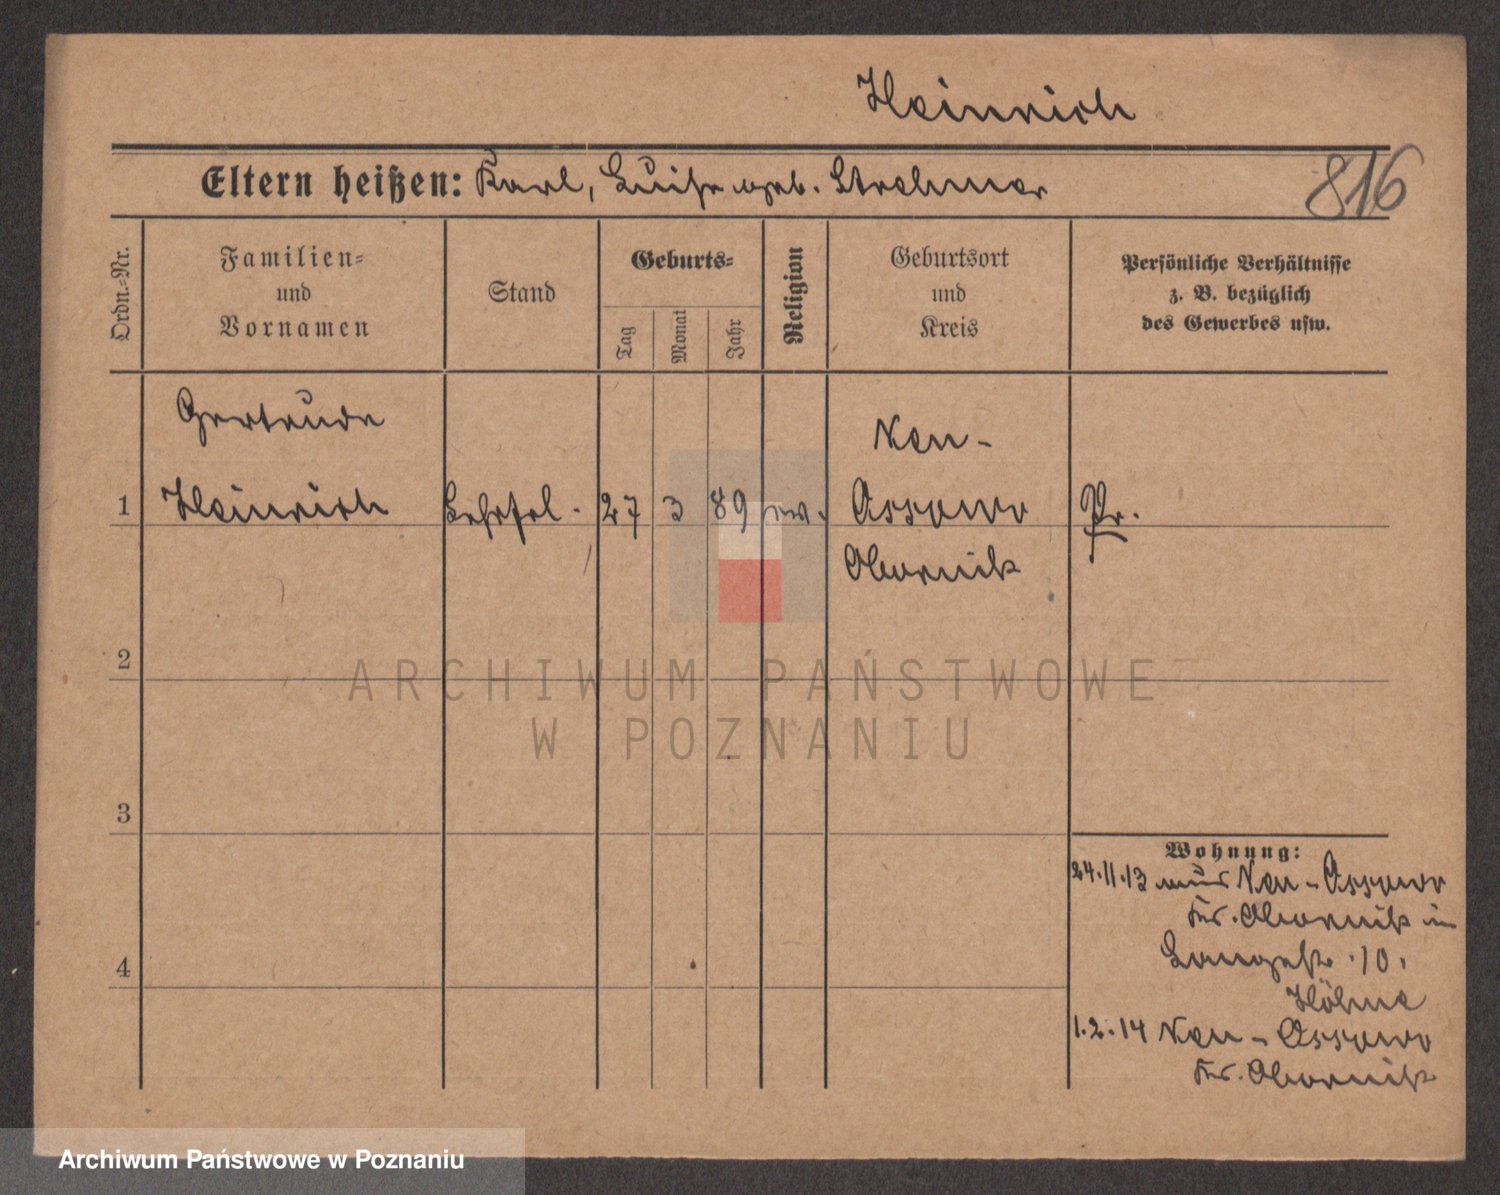 Heinrich
Eltern heißen: Karl, Luise geb. Strehmer
816
Ordn.-Nr.
Familien-
und
Vornamen
Stand
Geburts-
Tag
Monat
Jahr
Religion
Geburtsort
und
Kreis
Persönliche Verhältnisse
z. B. bezüglich
des Gewerbes usw.
Gertrude
Neu-
1 Heinrich Lehrfrl. 27 3 89 ev. Ossowo Pr.
Obornik
2
3
4
Wohnung:
24.11.13 aus Neu-Ossowo
Krs. Obornik in
Langestr. 10.
Höhne
1.2.14 Neu-Ossowo
Krs. Obornik
ARCHIWUM PAŃSTWOWE
W POZNANIU
Archiwum Państwowe w Poznaniu